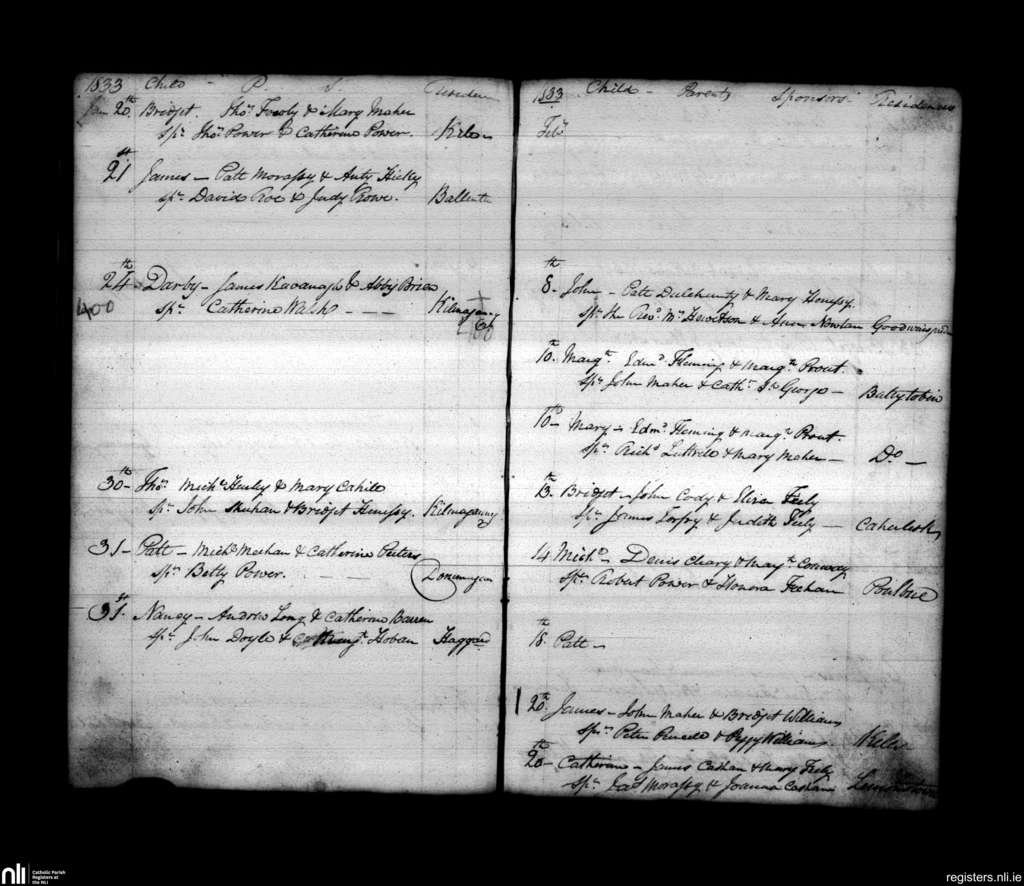 1833 Child - P. S. Residen
Jan 20th Bridget. Thos. Fowly & Mary Maher
Sps. Thos. Power & Catherine Power. Kils
21st James - Patt Morassy & Anty Hicky
Sps. David Roe & Judy Rowe. Ballint
24th Darby - James Kavanagh & Abby Brien
Sps. Catherine Walsh - - - Kilmaganny
400
30th Thos. Michl. Hurley & Mary Cahill
Sps. John Shuhan & Bridget Henessy. Kilmaganny
31 - Patt - Michl. Meehan & Catherine Peters
Sps. Betty Power.
31st Nancy - Andrew Long & Catherine Barron
Sps. John Doyle & Hoban Haggard
1833 Child - Parents Sponsors Residences
Feby.
8th John - Patt Dulchunty & Mary Henessy.
Sps. the Revd. Mr. Hewetson & Ann Nowlan
10th Margt. Edmd. Fleming & Margt. Prout.
Sps. John Maher & Cathn. St. George - Ballytobin
10th Mary - Edmd. Fleming & Margt. Prout.
Sps. Richd. Luttrell & Mary Maher - Do. -
13th Bridget - John Cody & Eliza Feely
Sps. James Torpy & Judith Feely - Caherlesk
14 Michl. - Denis Cleary & Mary Conway
Sps. Robert Power & Honora Feehan
18th Patt -
20th James - John Maher & Bridget Williams
Sps. Peter Purcell & Peggy Williams.
20th Catherine - James Cashan & Mary Feely
Sps. Jas. Morassy & Joanna Cashan
nli Catholic Parish
Registers at
the NLI
registers.nli.ie